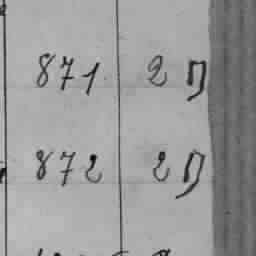 871 2 П
872 2 П